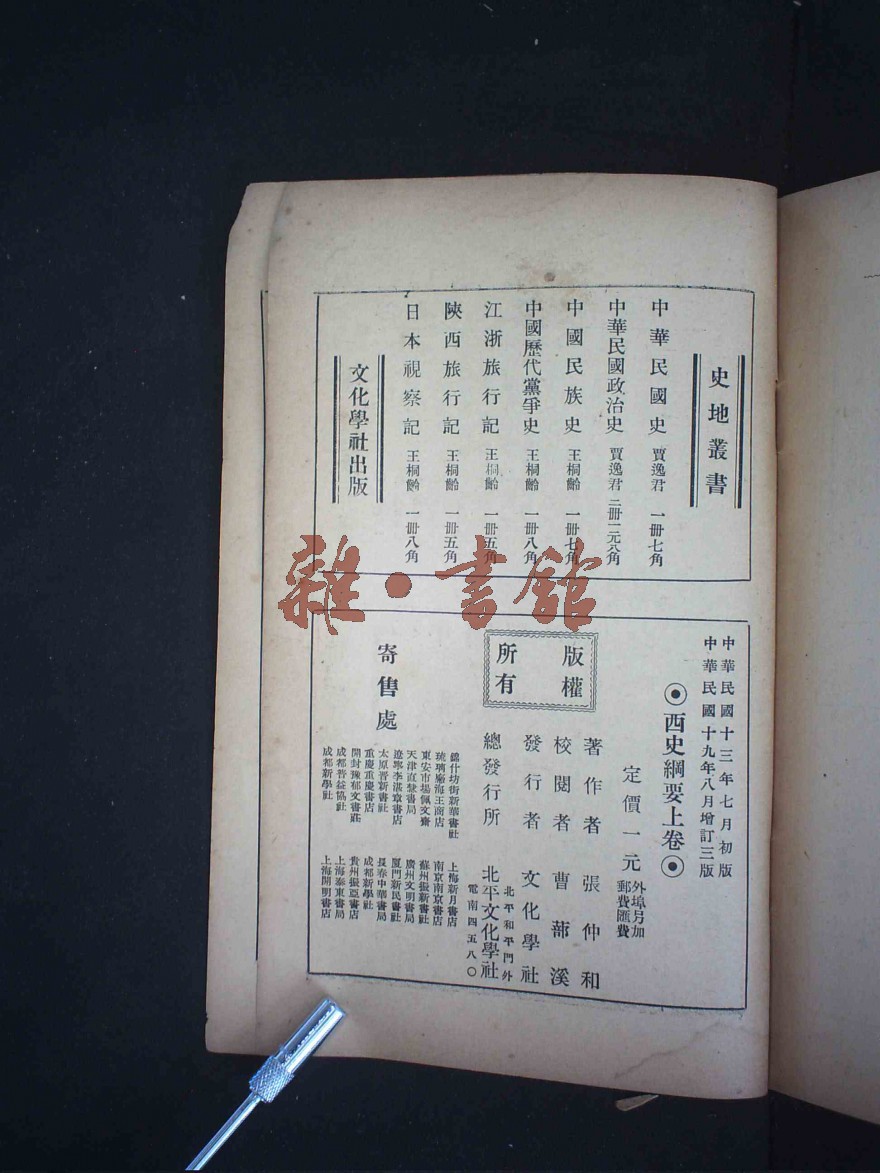 史地叢書
中華民國史 賈逸君 一冊七角
中華民國政治史 賈逸君 二冊二元六角
中國民族史 王桐齡 一冊七角
中國歷代黨爭史 王桐齡 一冊八角
江浙旅行記 王桐齡 一冊五角
陝西旅行記 王桐齡 一冊五角
日本視察記 王桐齡 一冊八角
文化學社出版
雜·書館
中華民國十三年七月初版
中華民國十九年八月增訂三版
西史綱要上卷
定價一元 外埠另加郵費匯費
版權所有
著作者 張仲和
校閱者 曹蔀溪
發行者 文化學社
北平和平門外
總發行所 北平文化學社
電南四五八〇
寄售處
錦什坊街新華書社
琉璃廠海王商店
東安市場佩文齋
天津直隸書局
遼寧李湛章書店
太原晋新書社
重慶重慶書店
開封豫郁文書莊
成都普益協社
成都新學社
上海新月書店
南京南京書店
蘇州振新書社
廣州文明書局
厦門新民書社
長春中華書局
成都新學社
貴州振亞書局
上海泰東書局
上海開明書店